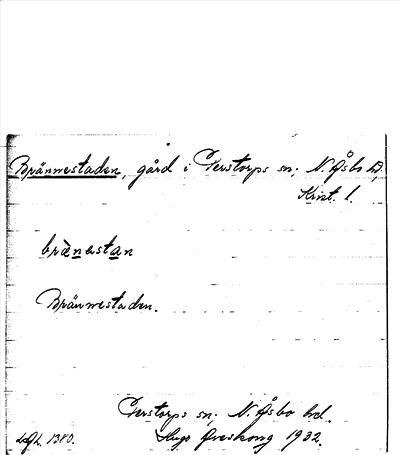 Brännestaden, gård i Perstorps sn; N. Åsbo hd,
Krist. l.
brä̀nastan
Brännestaden.
Perstorps sn; N. Åsbo hd.
Hugo Areskoug 1932.
1380.